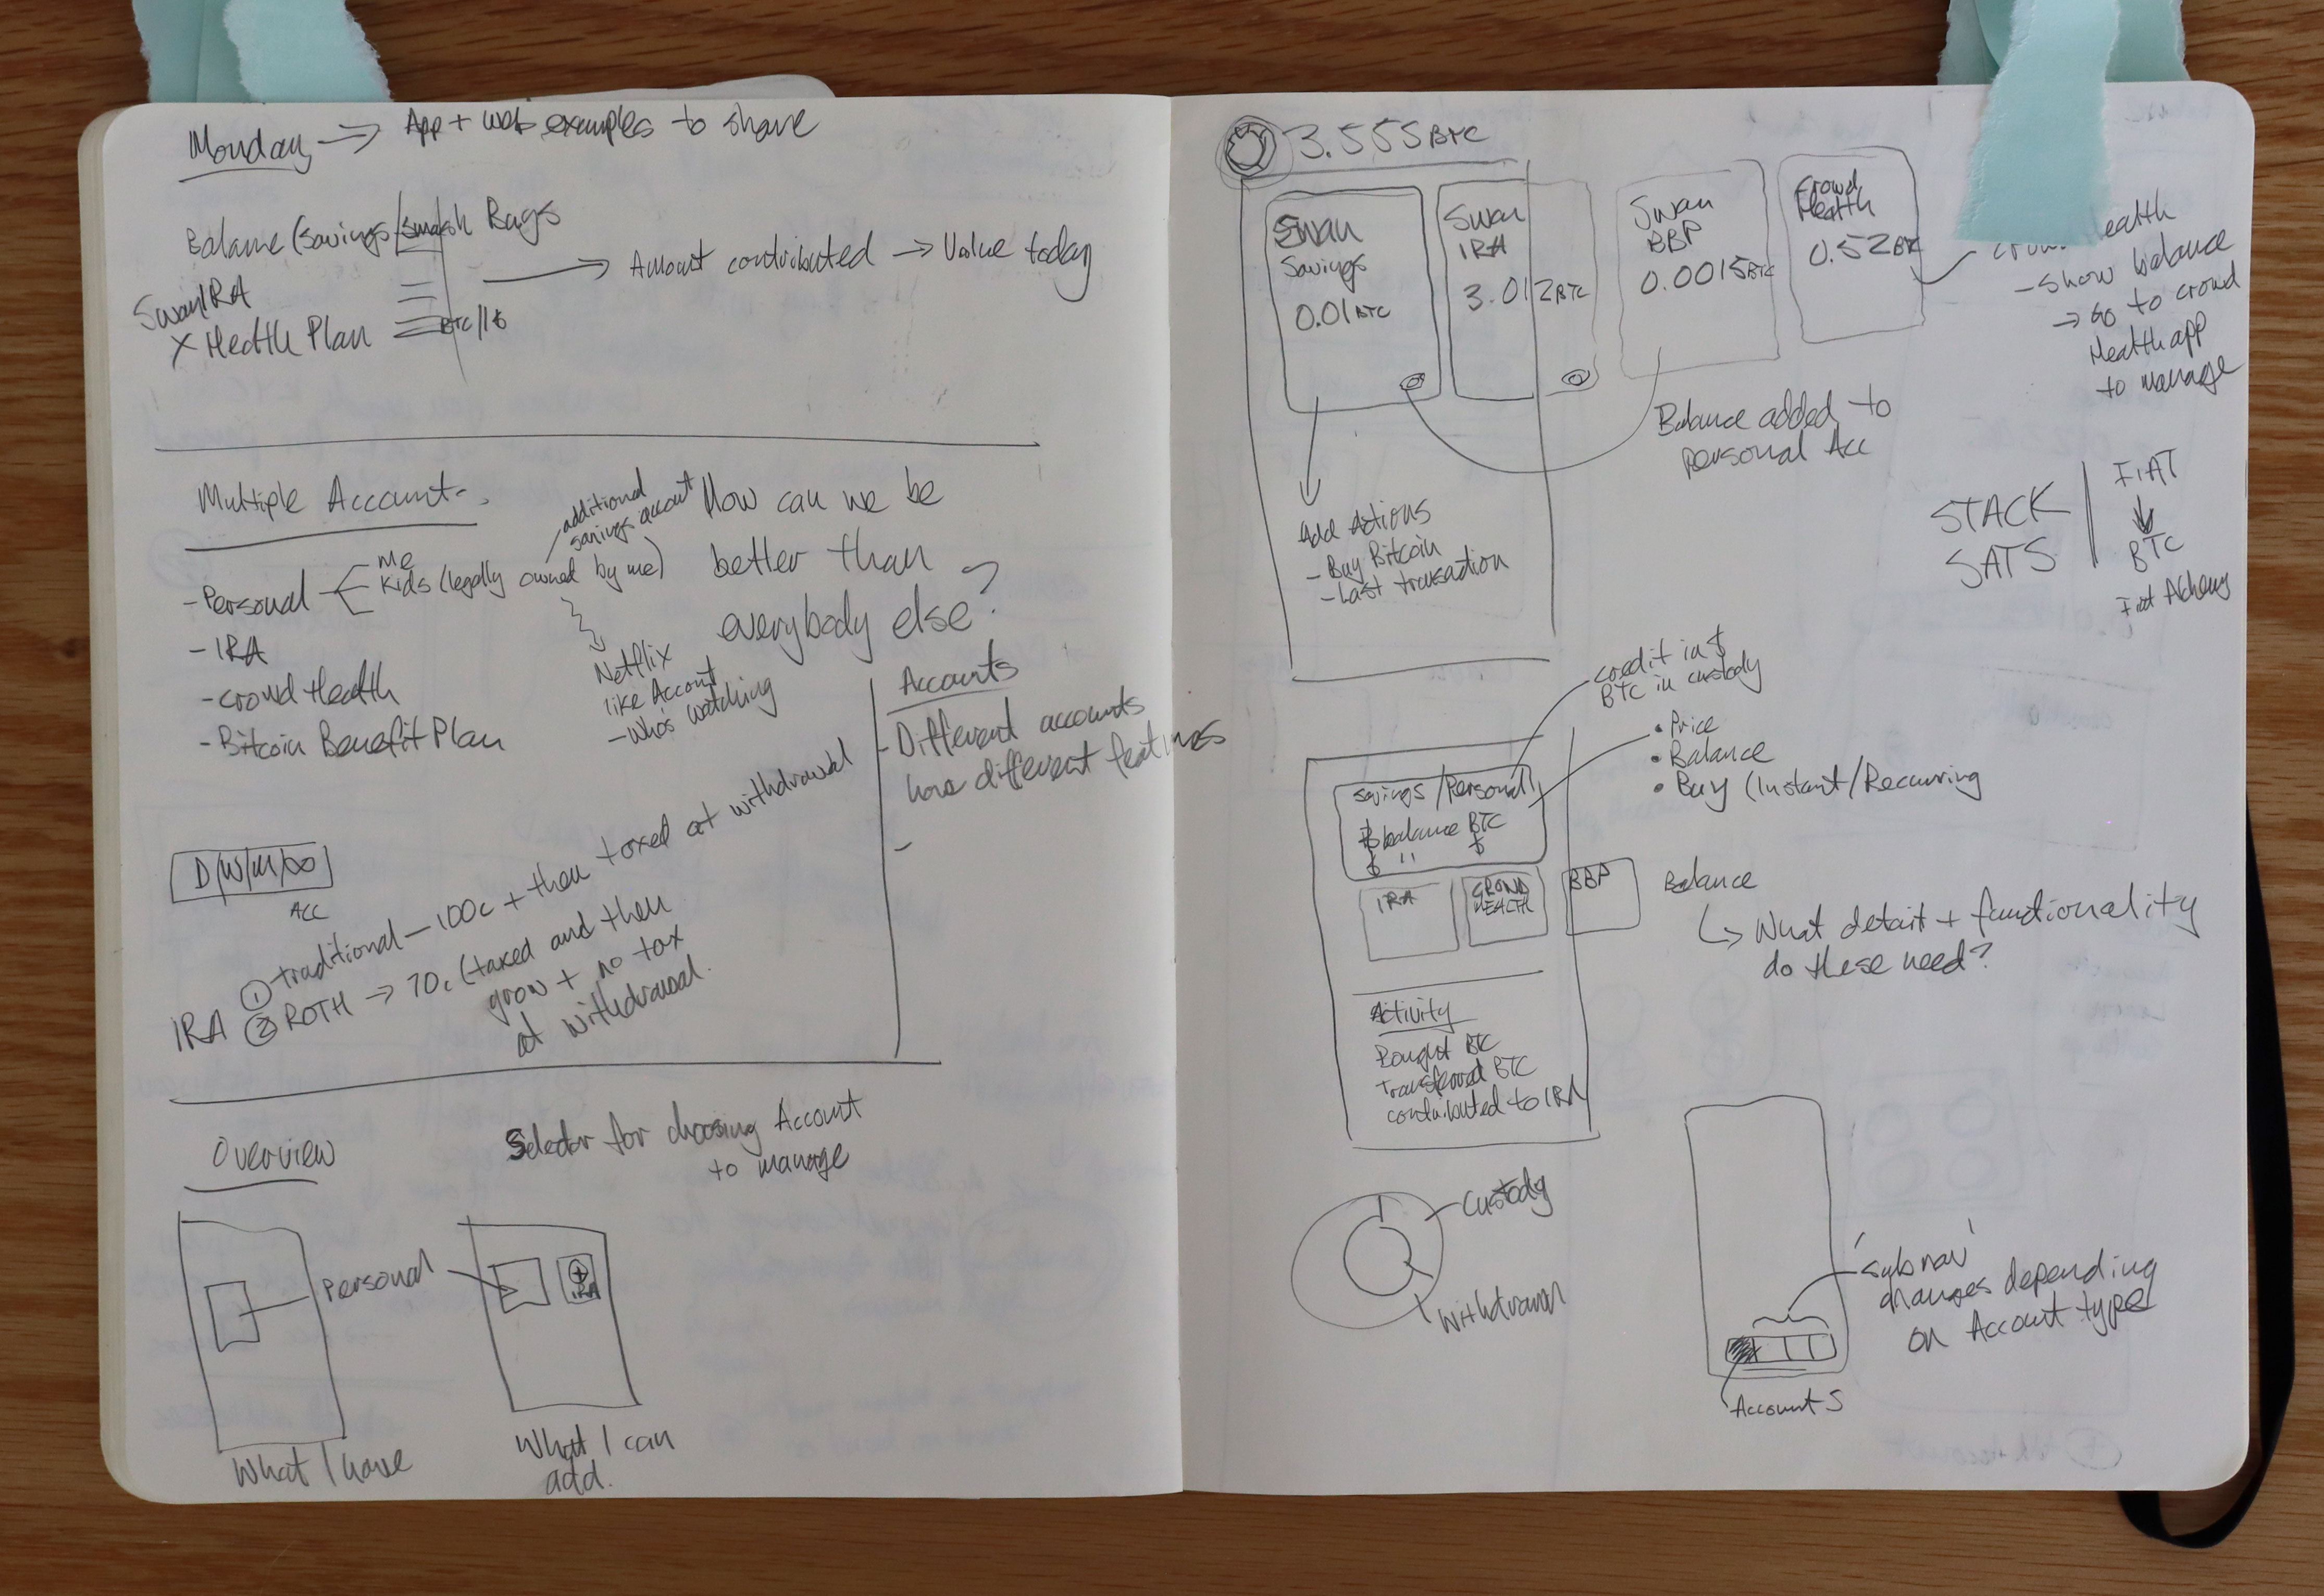 Monday → App + Web examples to share
Balance (Savings / Smash Bags
→ Amount contributed → Value today
Swan IRA
X Health Plan
BTC/1$
Multiple Account
additional
savings account
- Personal
Me
Kids (legally owned by me)
- IRA
- Crowd Health
- Bitcoin Benefit Plan
Netflix
like Account
- Who's watching
How can we be
better than
everybody else?
Accounts
- Different accounts
have different features
-
D/W/M/∞
ACC
IRA
① traditional - 100c + then taxed at withdrawal
② ROTH → 70c (taxed and then
grow + no tax
at withdrawal.
Overview
Selector for choosing Account
to manage
Personal
+
IRA
What I have
What I can
add.
3.555 BTC
Swan
Savings
0.01 BTC
Swan
IRA
3.012 BTC
Swan
BBP
0.0015 BTC
Crowd
Health
0.52 BTC
Health
- Show balance
→ Go to crowd
Health app
to manage
Balance added to
personal Acc
Add Actions
- Buy Bitcoin
- Last transaction
STACK
SATS
FIAT
↓
BTC
Fiat Alchemy
credit in $
BTC in custody
• Price
• Balance
• Buy (Instant/Recurring
Savings/Personal
₿ balance BTC
$ " $
IRA
CROWD
HEALTH
BBP
Balance
↳ What detail + functionality
do these need?
Activity
Bought BTC
Transferred BTC
contributed to IRA
Custody
Withdrawal
'subnav'
changes depending
on Account type
Accounts